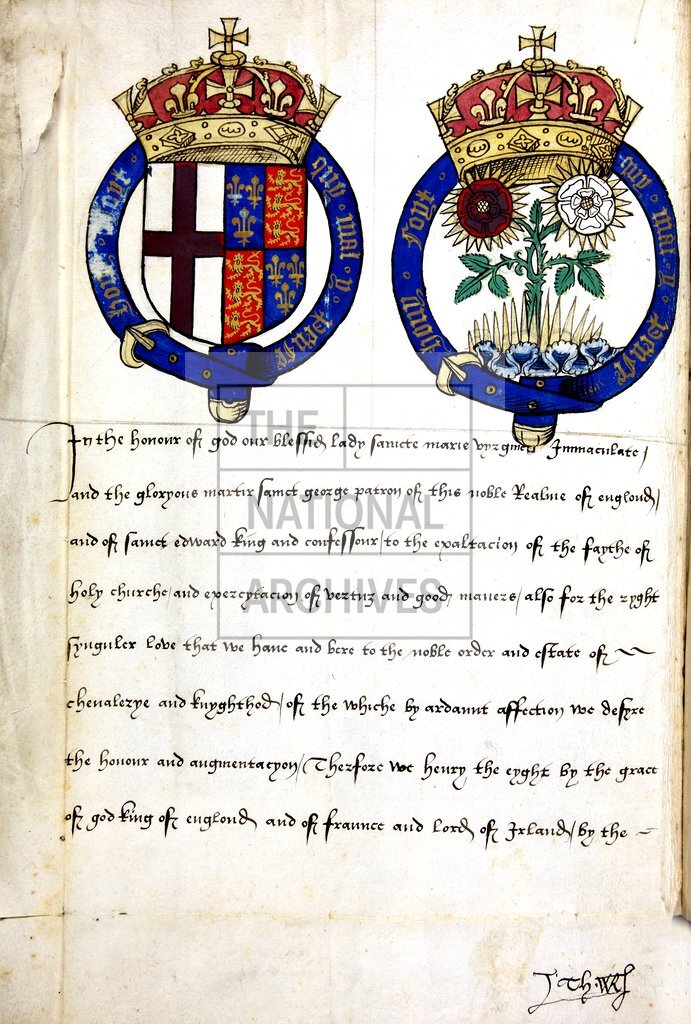 hony soyt quy mal y pense
hony soyt quy mal y pense
In the honour of god our blessid lady sancte marie vyrgine Immaculate /
and the gloryous martir sanct george patron of this noble Realme of englond /
and of sanct edward king and confessour / to the exaltacion of the faythe of
holy churche / and exercytacion of vertuz and good maners / also for the ryght
synguler love that we have and bere to the noble order and estate of
chevalerye and knyghthod / of the whiche by ardaunt affection we desyre
the honour and augmentacyon / Therfore we henry the eyght by the grace
of god king of englond and of fraunce and lord of Irland / by the
THE
NATIONAL
ARCHIVES